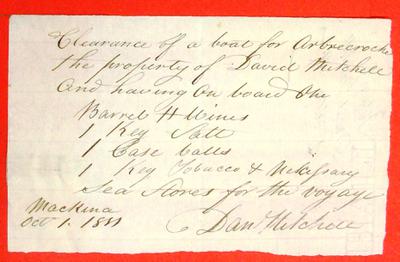 Clearance of a boat for Arbrecroche
the property of David Mitchell
and having on board One
Barrel H Wines
1 Keg Salt
1 Case balls
1 Keg Tobacco & Nekessary
Sea Stores for the voyage
Mackina
Oct 1. 18
Dan Mitchell